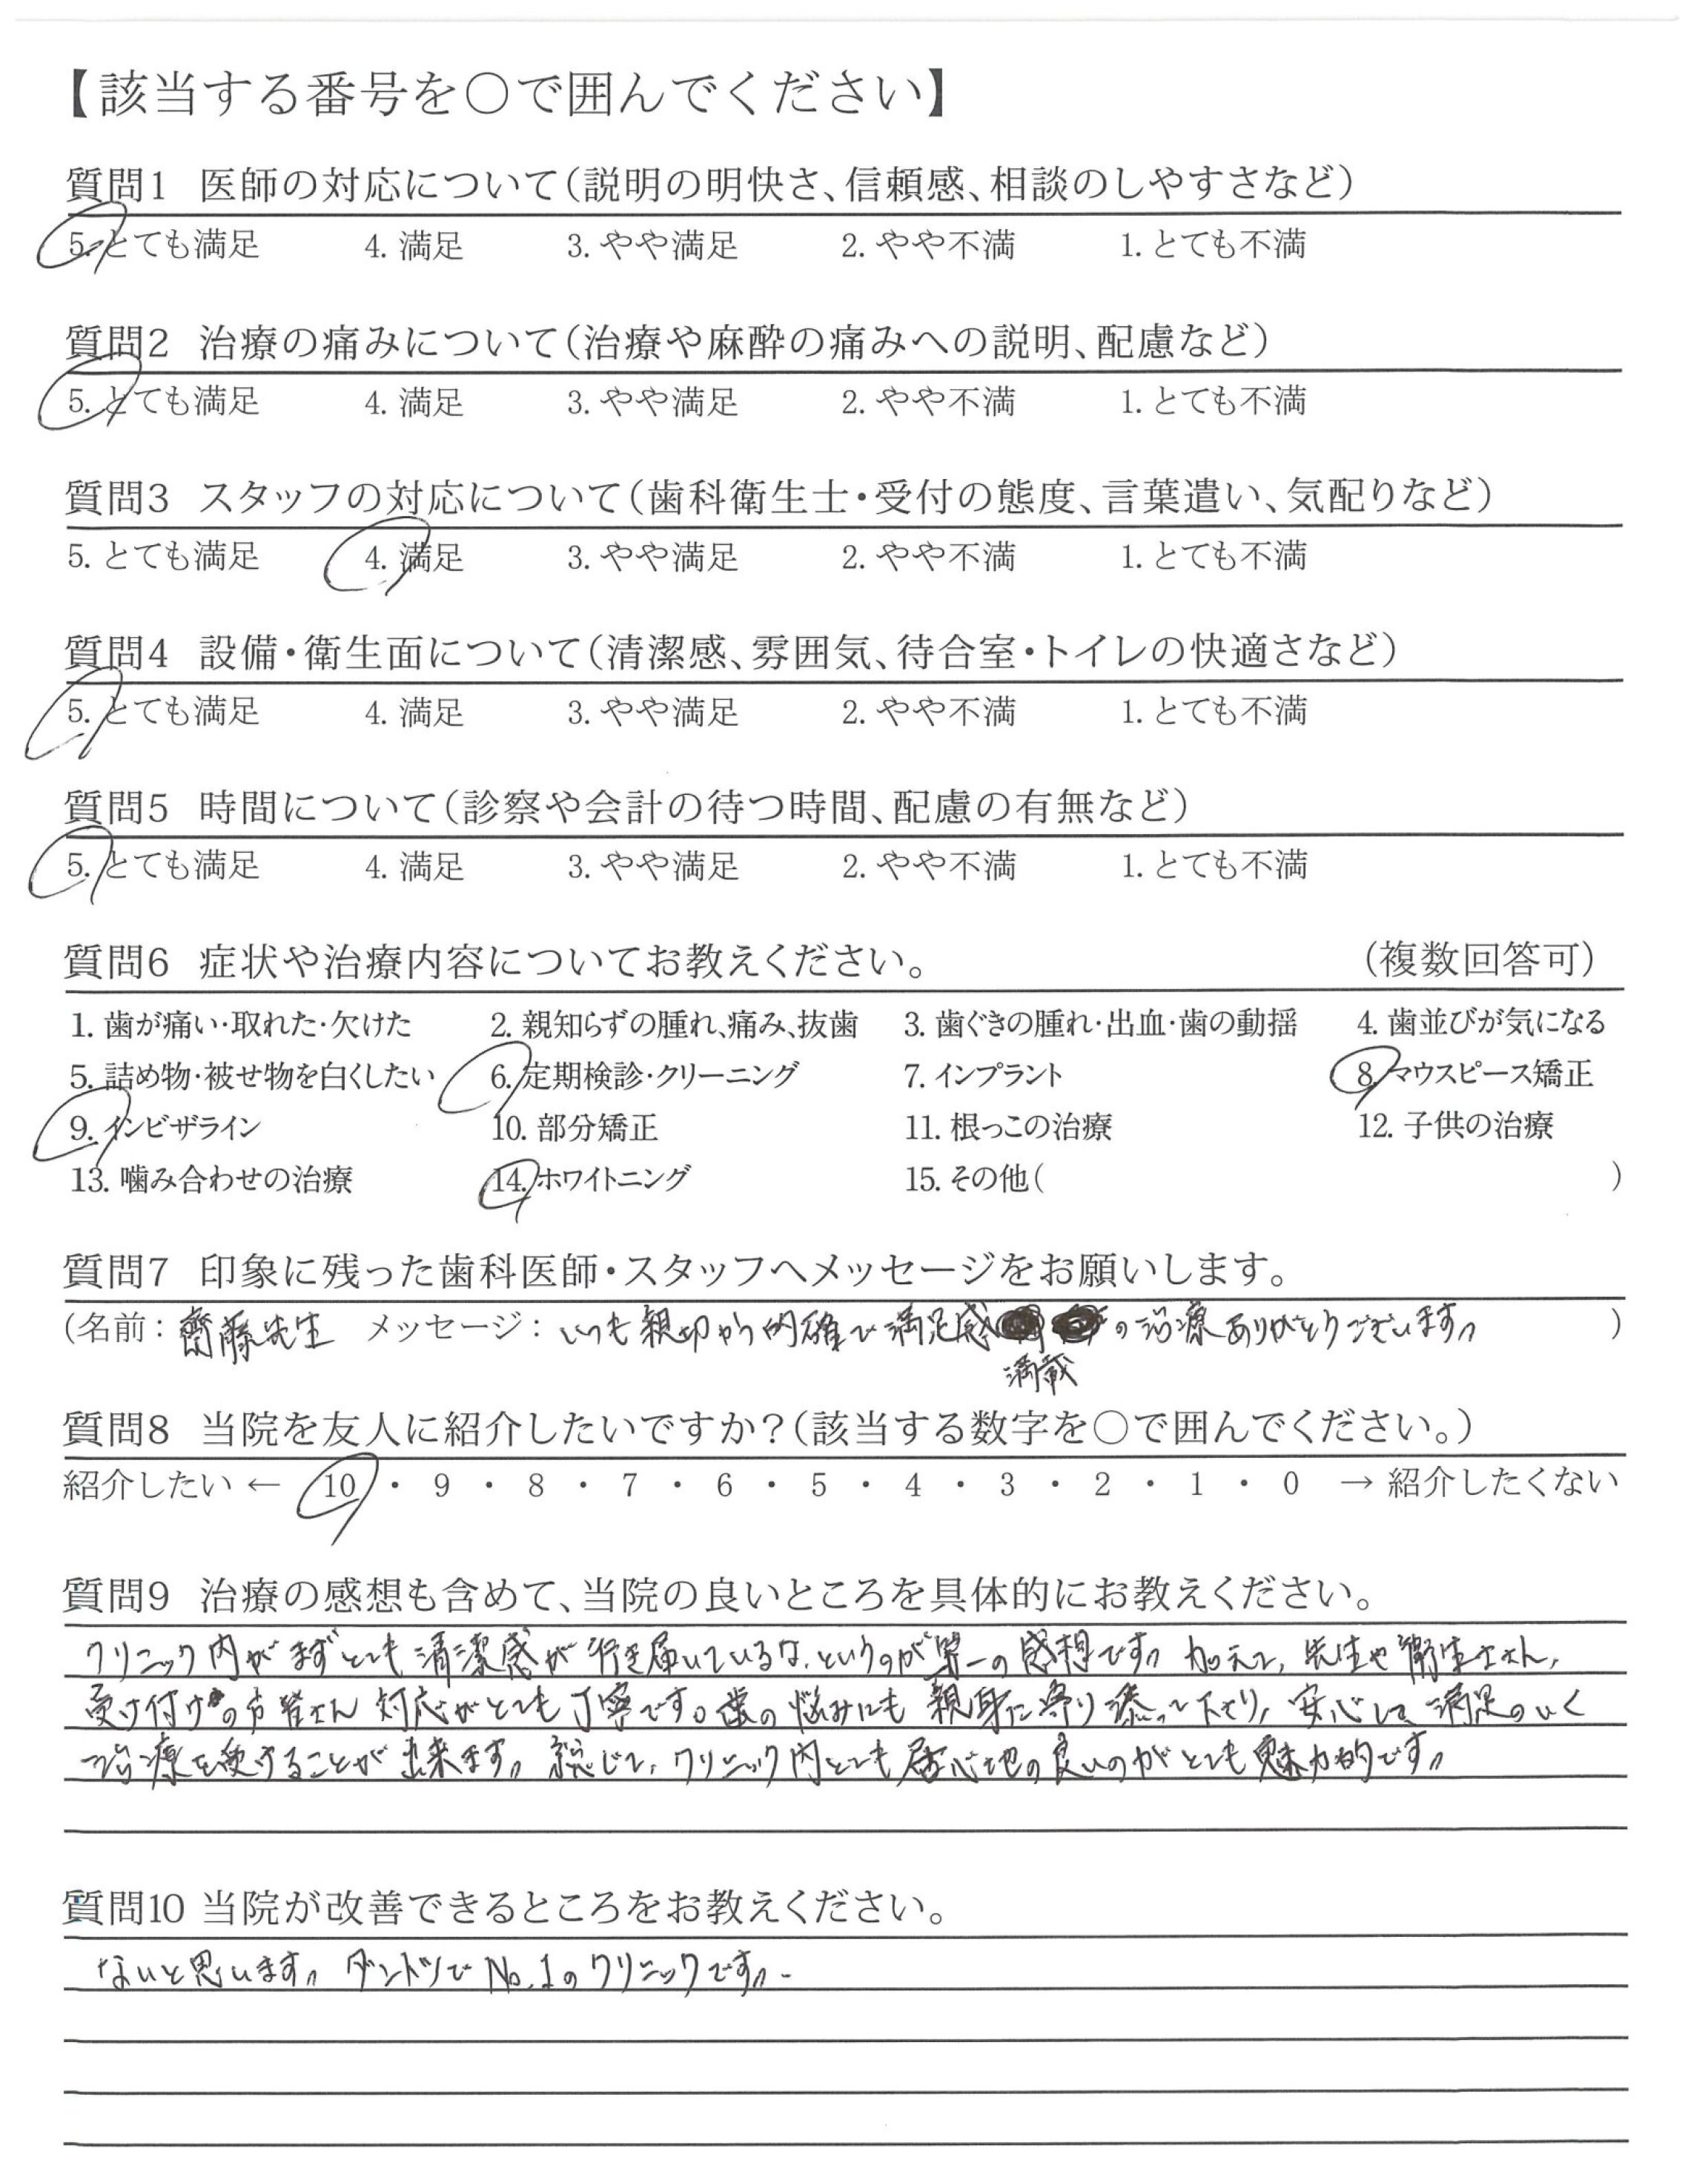 【該当する番号を○で囲んでください】
質問1 医師の対応について(説明の明快さ、信頼感、相談のしやすさなど)
5. とても満足 4. 満足 3. やや満足 2. やや不満 1. とても不満
質問2 治療の痛みについて(治療や麻酔の痛みへの説明、配慮など)
5. とても満足 4. 満足 3. やや満足 2. やや不満 1. とても不満
質問3 スタッフの対応について(歯科衛生士・受付の態度、言葉遣い、気配りなど)
5. とても満足 4. 満足 3. やや満足 2. やや不満 1. とても不満
質問4 設備・衛生面について(清潔感、雰囲気、待合室・トイレの快適さなど)
5. とても満足 4. 満足 3. やや満足 2. やや不満 1. とても不満
質問5 時間について(診察や会計の待つ時間、配慮の有無など)
5. とても満足 4. 満足 3. やや満足 2. やや不満 1. とても不満
質問6 症状や治療内容についてお教えください。 (複数回答可)
1. 歯が痛い・取れた・欠けた 2. 親知らずの腫れ、痛み、抜歯 3. 歯ぐきの腫れ・出血・歯の動揺 4. 歯並びが気になる
5. 詰め物・被せ物を白くしたい 6. 定期検診・クリーニング 7. インプラント 8. マウスピース矯正
9. インビザライン 10. 部分矯正 11. 根っこの治療 12. 子供の治療
13. 噛み合わせの治療 14. ホワイトニング 15. その他( )
質問7 印象に残った歯科医師・スタッフへメッセージをお願いします。
(名前: 齋藤先生 メッセージ: いつも親切かつ的確で満足感 の治療ありがとうございます。 )
満載
質問8 当院を友人に紹介したいですか?(該当する数字を○で囲んでください。)
紹介したい ← 10 ・ 9 ・ 8 ・ 7 ・ 6 ・ 5 ・ 4 ・ 3 ・ 2 ・ 1 ・ 0 → 紹介したくない
質問9 治療の感想も含めて、当院の良いところを具体的にお教えください。
クリニック内がまずとても清潔感が行き届いているな、というのが第一の感想です。加えて、先生や衛生士さん、
受け付けの方皆さん対応がとても丁寧です。歯の悩みにも親身に寄り添って下さり、安心して満足のいく
治療を受けることが出来ます。総じて、クリニック内とても居心地の良いのがとても魅力的です。
質問10 当院が改善できるところをお教えください。
ないと思います。ダントツでNo.1のクリニックです。